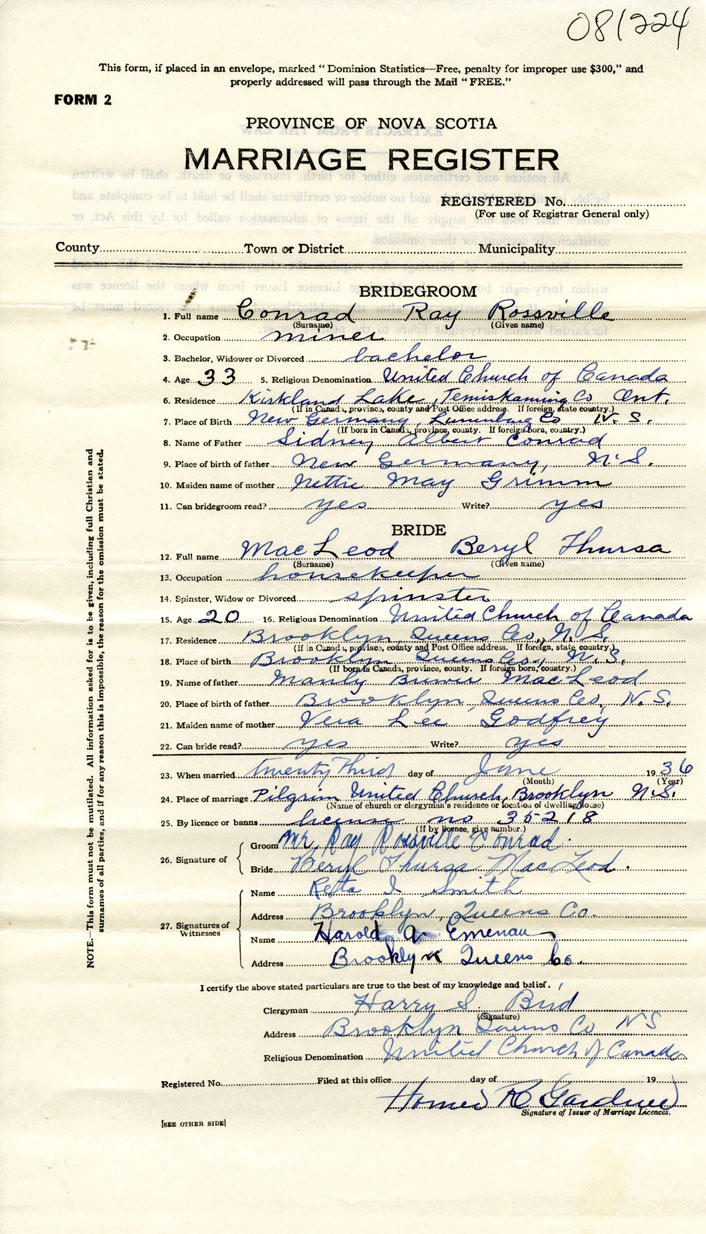 081224
This form, if placed in an envelope, marked "Dominion Statistics—Free, penalty for improper use $300," and
properly addressed will pass through the Mail "FREE."
FORM 2
PROVINCE OF NOVA SCOTIA
MARRIAGE REGISTER
REGISTERED No.
(For use of Registrar General only)
County Town or District Municipality
BRIDEGROOM
1. Full name Conrad Ray Rossville
(Surname) (Given name)
2. Occupation miner
3. Bachelor, Widower or Divorced bachelor
4. Age 33 5. Religious Denomination United Church of Canada
6. Residence Kirkland Lake, Temiskaming Co Ont.
(If in Canada, province, county and Post Office address. If foreign, state country.)
7. Place of Birth New Germany, Lunenburg Co N.S.
(If born in Canada, province, county. If foreign born, country.)
8. Name of Father Sidney Albert Conrad
9. Place of birth of father New Germany, N.S.
10. Maiden name of mother Nettie May Grimm
11. Can bridegroom read? yes Write? yes
BRIDE
12. Full name MacLeod Beryl Thursa
(Surname) (Given name)
13. Occupation housekeeper
14. Spinster, Widow or Divorced spinster
15. Age 20 16. Religious Denomination United Church of Canada
17. Residence Brooklyn, Queens Co., N.S.
(If in Canada, province, county and Post Office address. If foreign, state country.)
18. Place of birth Brooklyn Queens Co., N.S.
(If born in Canada, province, county. If foreign born, country.)
19. Name of father Manly MacLeod
20. Place of birth of father Brooklyn, Queens Co., N.S.
21. Maiden name of mother Vera Lee Godfrey
22. Can bride read? yes Write? yes
23. When married Twenty Third day of June 1936
(Month) (Year)
24. Place of marriage Pilgrim United Church, Brooklyn N.S.
(Name of church or clergyman's residence or location of dwelling house)
25. By licence or banns license no 35218
(If by licence, give number.)
26. Signature of
Groom Mr. Ray Rossville Conrad.
Bride Beryl Thursa MacLeod.
27. Signatures of Witnesses
Name Retta I Smith
Address Brooklyn, Queens Co.
Name Harold A Emenau
Address Brooklyn Queens Co.
I certify the above stated particulars are true to the best of my knowledge and belief.
Clergyman Harry S. Bird
(Signature)
Address Brooklyn Queens Co NS
Religious Denomination United Church of Canada
Registered No. Filed at this office day of 19
Homer R Gardner
Signature of Issuer of Marriage Licences.
[SEE OTHER SIDE]
NOTE.—This form must not be mutilated. All information asked for is to be given, including full Christian and
surnames of all parties, and if for any reason this is impossible, the reason for the omission must be stated.